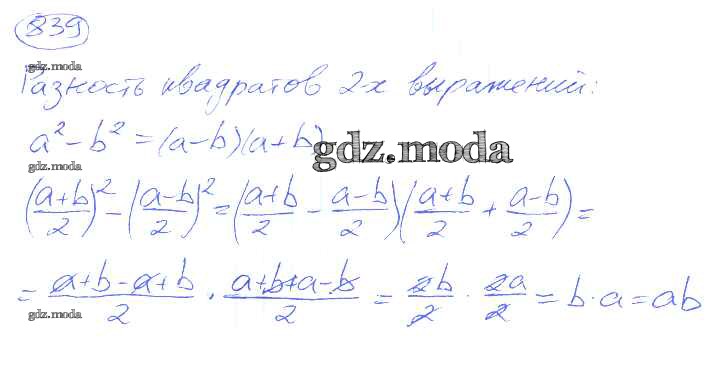 839
gdz.moda
Разность квадратов 2-х выражений:
a² - b² = (a-b)(a+b)
gdz.moda
gdz.moda
((a+b)/2)² - ((a-b)/2)² = ((a+b)/2 - (a-b)/2)((a+b)/2 + (a-b)/2) =
= (a+b-a+b)/2 · (a+b+a-b)/2 = 2b/2 · 2a/2 = b·a = ab
gdz.moda